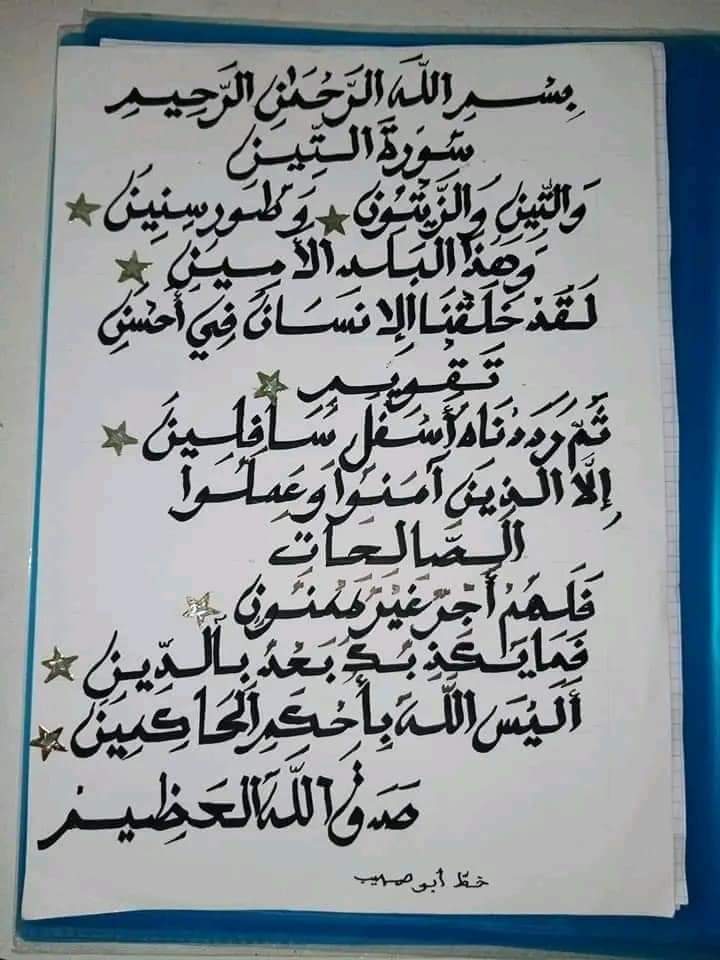 بِسْمِ اللَّهِ الرَّحْمَٰنِ الرَّحِيمِ
سُورَةُ التِّينِ
وَالتِّينِ وَالزَّيْتُونِ وَطُورِ سِنِينَ
وَهَٰذَا الْبَلَدِ الْأَمِينِ
لَقَدْ خَلَقْنَا الْإِنسَانَ فِي أَحْسَنِ
تَقْوِيمٍ
ثُمَّ رَدَدْنَاهُ أَسْفَلَ سَافِلِينَ
إِلَّا الَّذِينَ آمَنُوا وَعَمِلُوا
الصَّالِحَاتِ
فَلَهُمْ أَجْرٌ غَيْرُ مَمْنُونٍ
فَمَا يُكَذِّبُكَ بَعْدُ بِالدِّينِ
أَلَيْسَ اللَّهُ بِأَحْكَمِ الْحَاكِمِينَ
صَدَقَ اللَّهُ الْعَظِيمُ
خط أبو صهيب